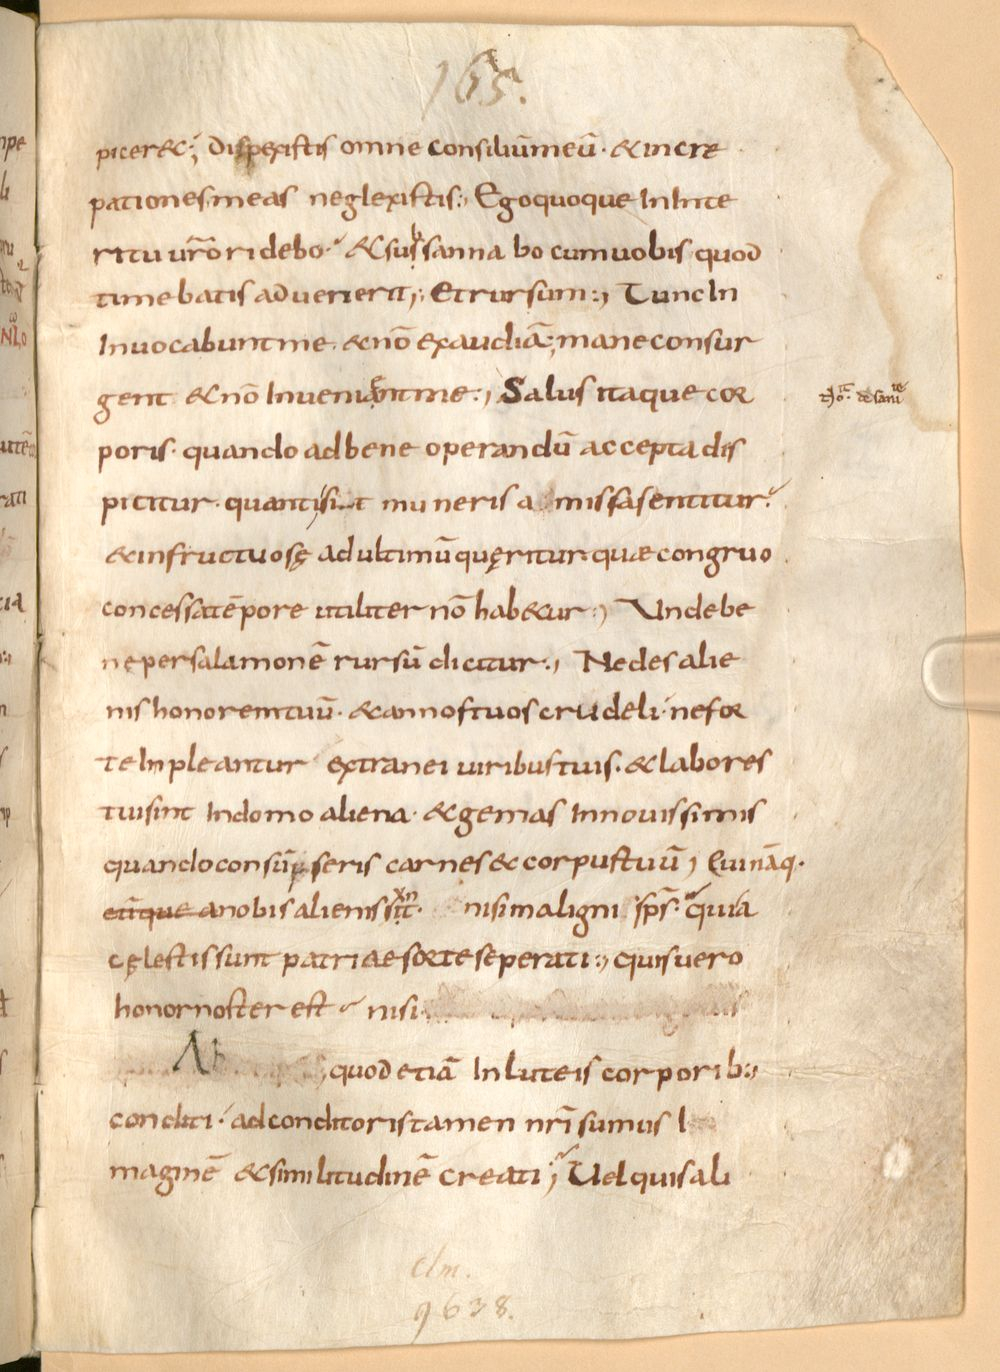 165.
piceret·; Dispexistis omne consiliū meū· & incre
pationes meas neglexistis:, Ego quoque In Inte
ritu ur̄o ridebo· & subsannabo cum uobis quod
timebatis aduenerit·; Et rursum:, Tunc In
Inuocabunt me· & nō exaudiā; mane consur
gent & nō Inuenient me:, Salus itaque cor
poris· quando ad bene operandū accepta dis
picitur· quanti sit muneris amissa sentitur·
& infructuosę ad ultimū quęritur· quae congruo
concessa tēpore utiliter nō habetur:, Unde be
ne per salamonē rursū dicitur:, Ne des alie
nis honorem tuū· & annos tuos crudeli· ne for
te Inpleantur extranei uiribus tuis· & labores
tui sint In domo aliena· & gemas In nouissimis
quando consūpseris carnes & corpus tuū, Qui nāq·
a nobis alieni st̄· nisi maligni sps̄· quia
cęlestis sunt patriae sorte seperati:, quis uero
honor noster est nisi
quod etiā In luteis corporib:,
conditi· ad conditoris tamen nr̄i sumus I
maginē & similitudinē creati·; Uel quis ali
Clm.
9638.